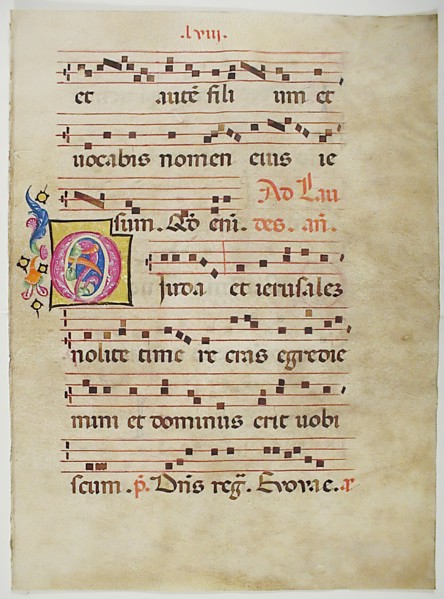 .lviij.
et autē fili um et
uocabis nomen eius ie
Ad Lau
sum. Qđ eni. des. añ.
O Iuda et ierusalez
nolite time re cras egredie
mini et dominus erit uobi
scum. p̄. Dñs reg̃. Evovae.